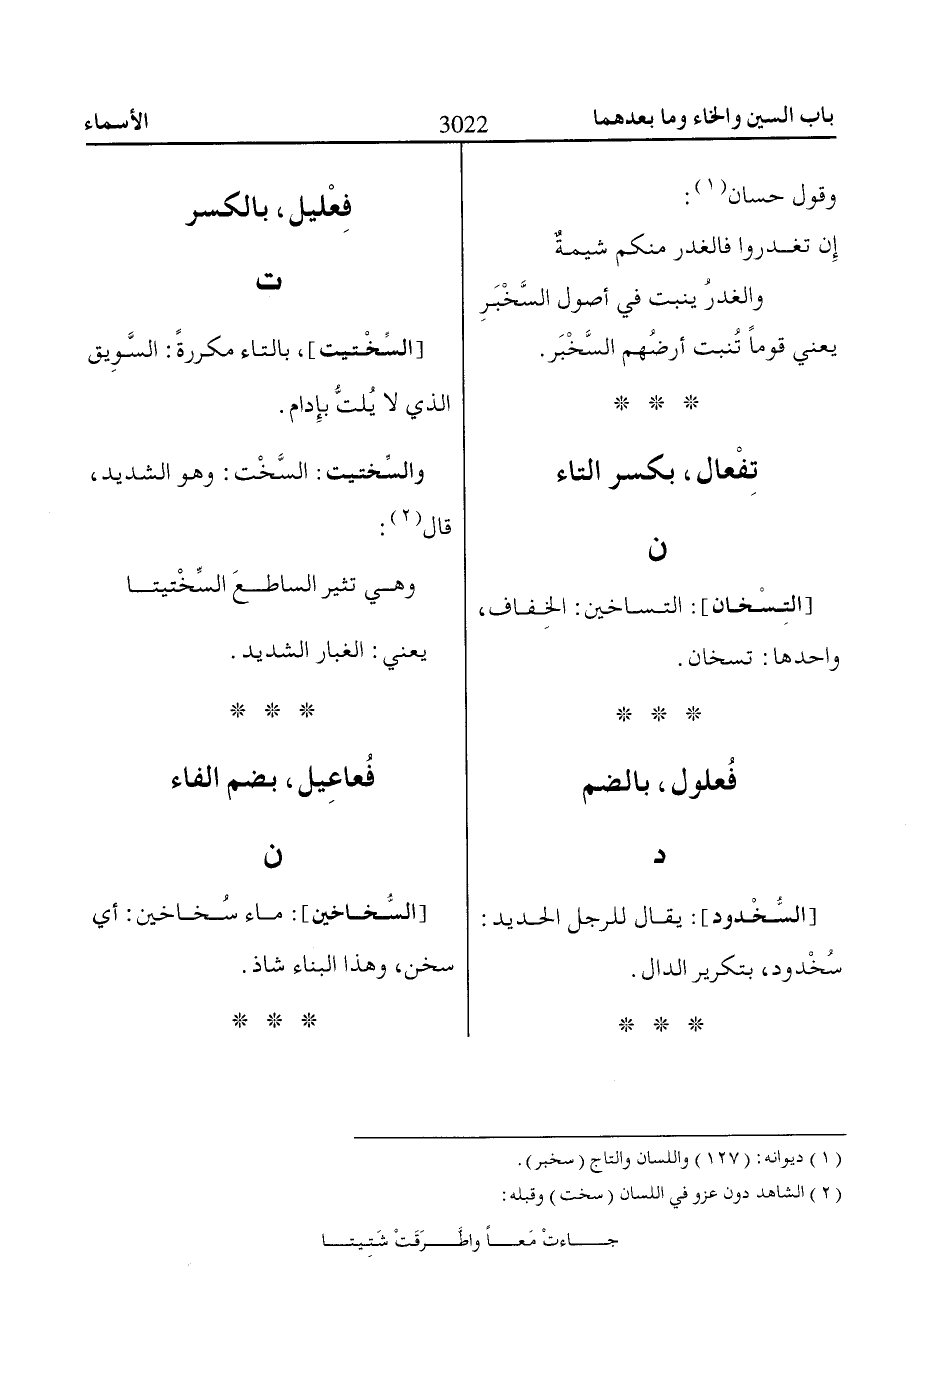 باب السين والخاء وما بعدهما
3022
الأسماء
وقول حسان(١):
إن تغدروا فالغدر منكم شيمةٌ
والغدرُ ينبت في أصول السَّخْبَرِ
يعني قوماً تُنبت أرضُهم السَّخْبَر.
* * *
تِفْعال، بكسر التاء
ن
[التِسْخان]: التساخين: الخِفاف،
واحدها: تسخان.
* * *
فُعلول، بالضم
د
[السُّخْدود]: يقال للرجل الحديد:
سُخْدود، بتكرير الدال.
* * *
فِعْليل، بالكسر
ت
[السِّخْتيت]، بالتاء مكررةً: السَّوِيق
الذي لا يُلتُّ بإِدام.
والسِّختيت: السَّخْت: وهو الشديد،
قال(٢):
وهي تثير الساطعَ السِّخْتيتا
يعني: الغبار الشديد.
* * *
فُعاعِيل، بضم الفاء
ن
[السُّخاخين]: ماء سُخاخين: أي
سخن، وهذا البناء شاذ.
* * *
(١) ديوانه: (١٢٧) واللسان والتاج (سخبر).
(٢) الشاهد دون عزو في اللسان (سخت) وقبله:
جاءتْ مَعاً واطَّرَقَتْ شَتِيتا